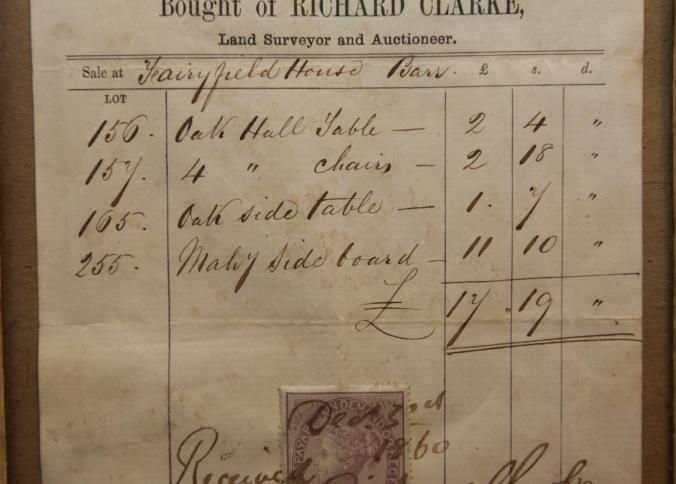 Bought of RICHARD CLARKE,
Land Surveyor and Auctioneer.
Sale at Fairyfield House Barr. £ s. d.
LOT
156. Oak Hall Table — 2 4 "
157. 4 " chairs — 2 18 "
165. Oak side table — 1. 7 "
255. Mahy side board — 11 10 "
£ 17 " 19 "
Decr
1860
Received